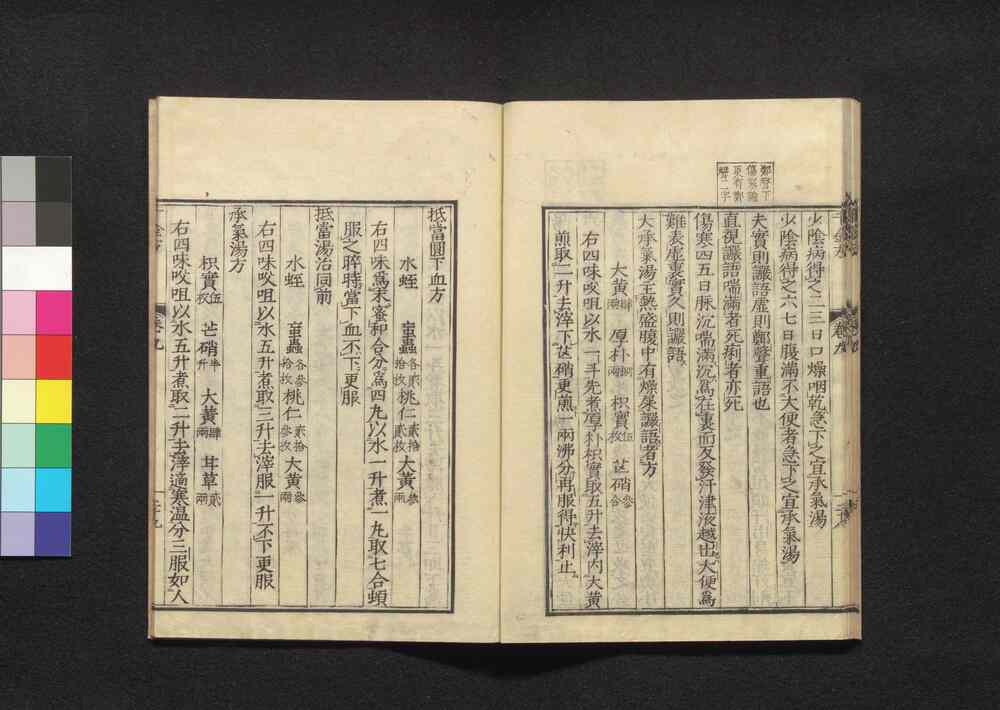 少陰病得之二三日口燥咽乾急下之宜承氣湯
少陰病得之六七日腹滿不大便者急下之宜承氣湯
夫實則讝語虛則鄭聲重語也
直視讝語喘滿者死痢者亦死
傷寒四五日脉沉喘滿沉爲在裏而反發汗津液越出大便爲
難表虛裏實久則讝語
大承氣湯主熱盛腹中有燥屎讝語者方
大黃肆兩 厚朴捌兩 枳實伍枚 芒硝參合
右四味㕮咀以水一斗先煮厚朴枳實取五升去滓內大黃
煎取二升去滓下芒硝更煎一兩沸分再服得快利止
抵當圓下血方
水蛭 䖟蟲各貳拾枚 桃仁貳拾貳枚 大黃參兩
右四味爲末蜜和合分爲四丸以水一升煮一丸取七合頓
服之晬時當下血不下更服
抵當湯治同前
水蛭 䖟蟲各參拾枚 桃仁貳拾參枚 大黃參兩
右四味㕮咀以水五升煮取三升去滓服一升不下更服
承氣湯方
枳實伍枚 芒硝半升 大黃肆兩 甘草貳兩
右四味㕮咀以水五升煮取二升去滓適寒温分三服如人
卷九